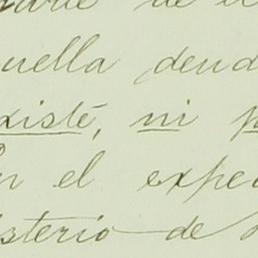 de
uella deud
xiste, ni p
en el expe
isterio de